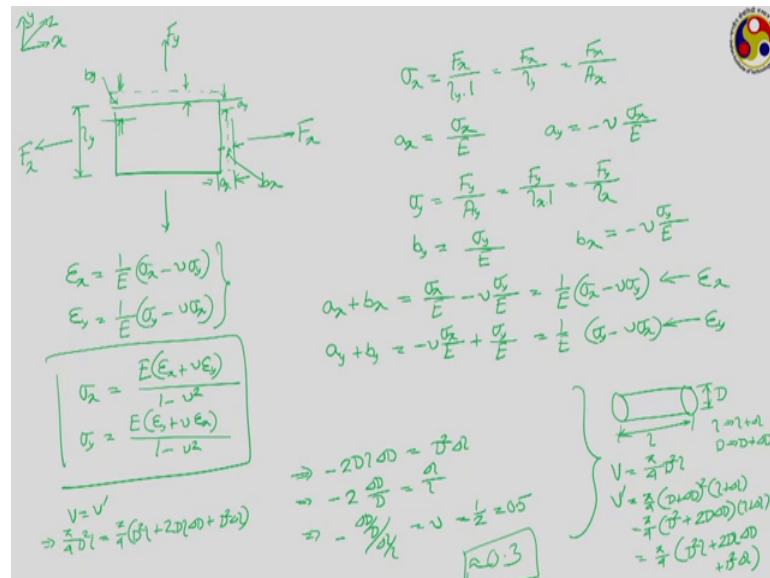 y
z
x
F_y
b_y
a_y
l_y
F_x
F_x
a_x
b_x
ε_x = 1/E (σ_x - νσ_y)
ε_y = 1/E (σ_y - νσ_x)
σ_x = E(ε_x + νε_y) / 1 - ν²
σ_y = E(ε_y + νε_x) / 1 - ν²
V = V'
⇒ π/4 D²l = π/4 (D²l + 2DlΔD + D²Δl)
σ_x = F_x/l_y.1 = F_x/l_y = F_x/A_x
a_x = σ_x/E a_y = -ν σ_x/E
σ_y = F_y/A_y = F_y/l_x.1 = F_y/l_x
b_y = σ_y/E b_x = -ν σ_y/E
a_x + b_x = σ_x/E - ν σ_y/E = 1/E (σ_x - νσ_y) ← ε_x
a_y + b_y = -ν σ_x/E + σ_y/E = 1/E (σ_y - νσ_x) ← ε_y
⇒ -2DlΔD = D²Δl
⇒ -2 ΔD/D = Δl/l
⇒ - ΔD/D / Δl/l = ν = 1/2 = 0.5
≈0.3
D
l
l ⇒ l+Δl
D ⇒ D+ΔD
V = π/4 D²l
V' = π/4 (D+ΔD)² (l+Δl)
= π/4 (D² + 2DΔD) (l+Δl)
= π/4 (D²l + 2DlΔD
+ D²Δl)